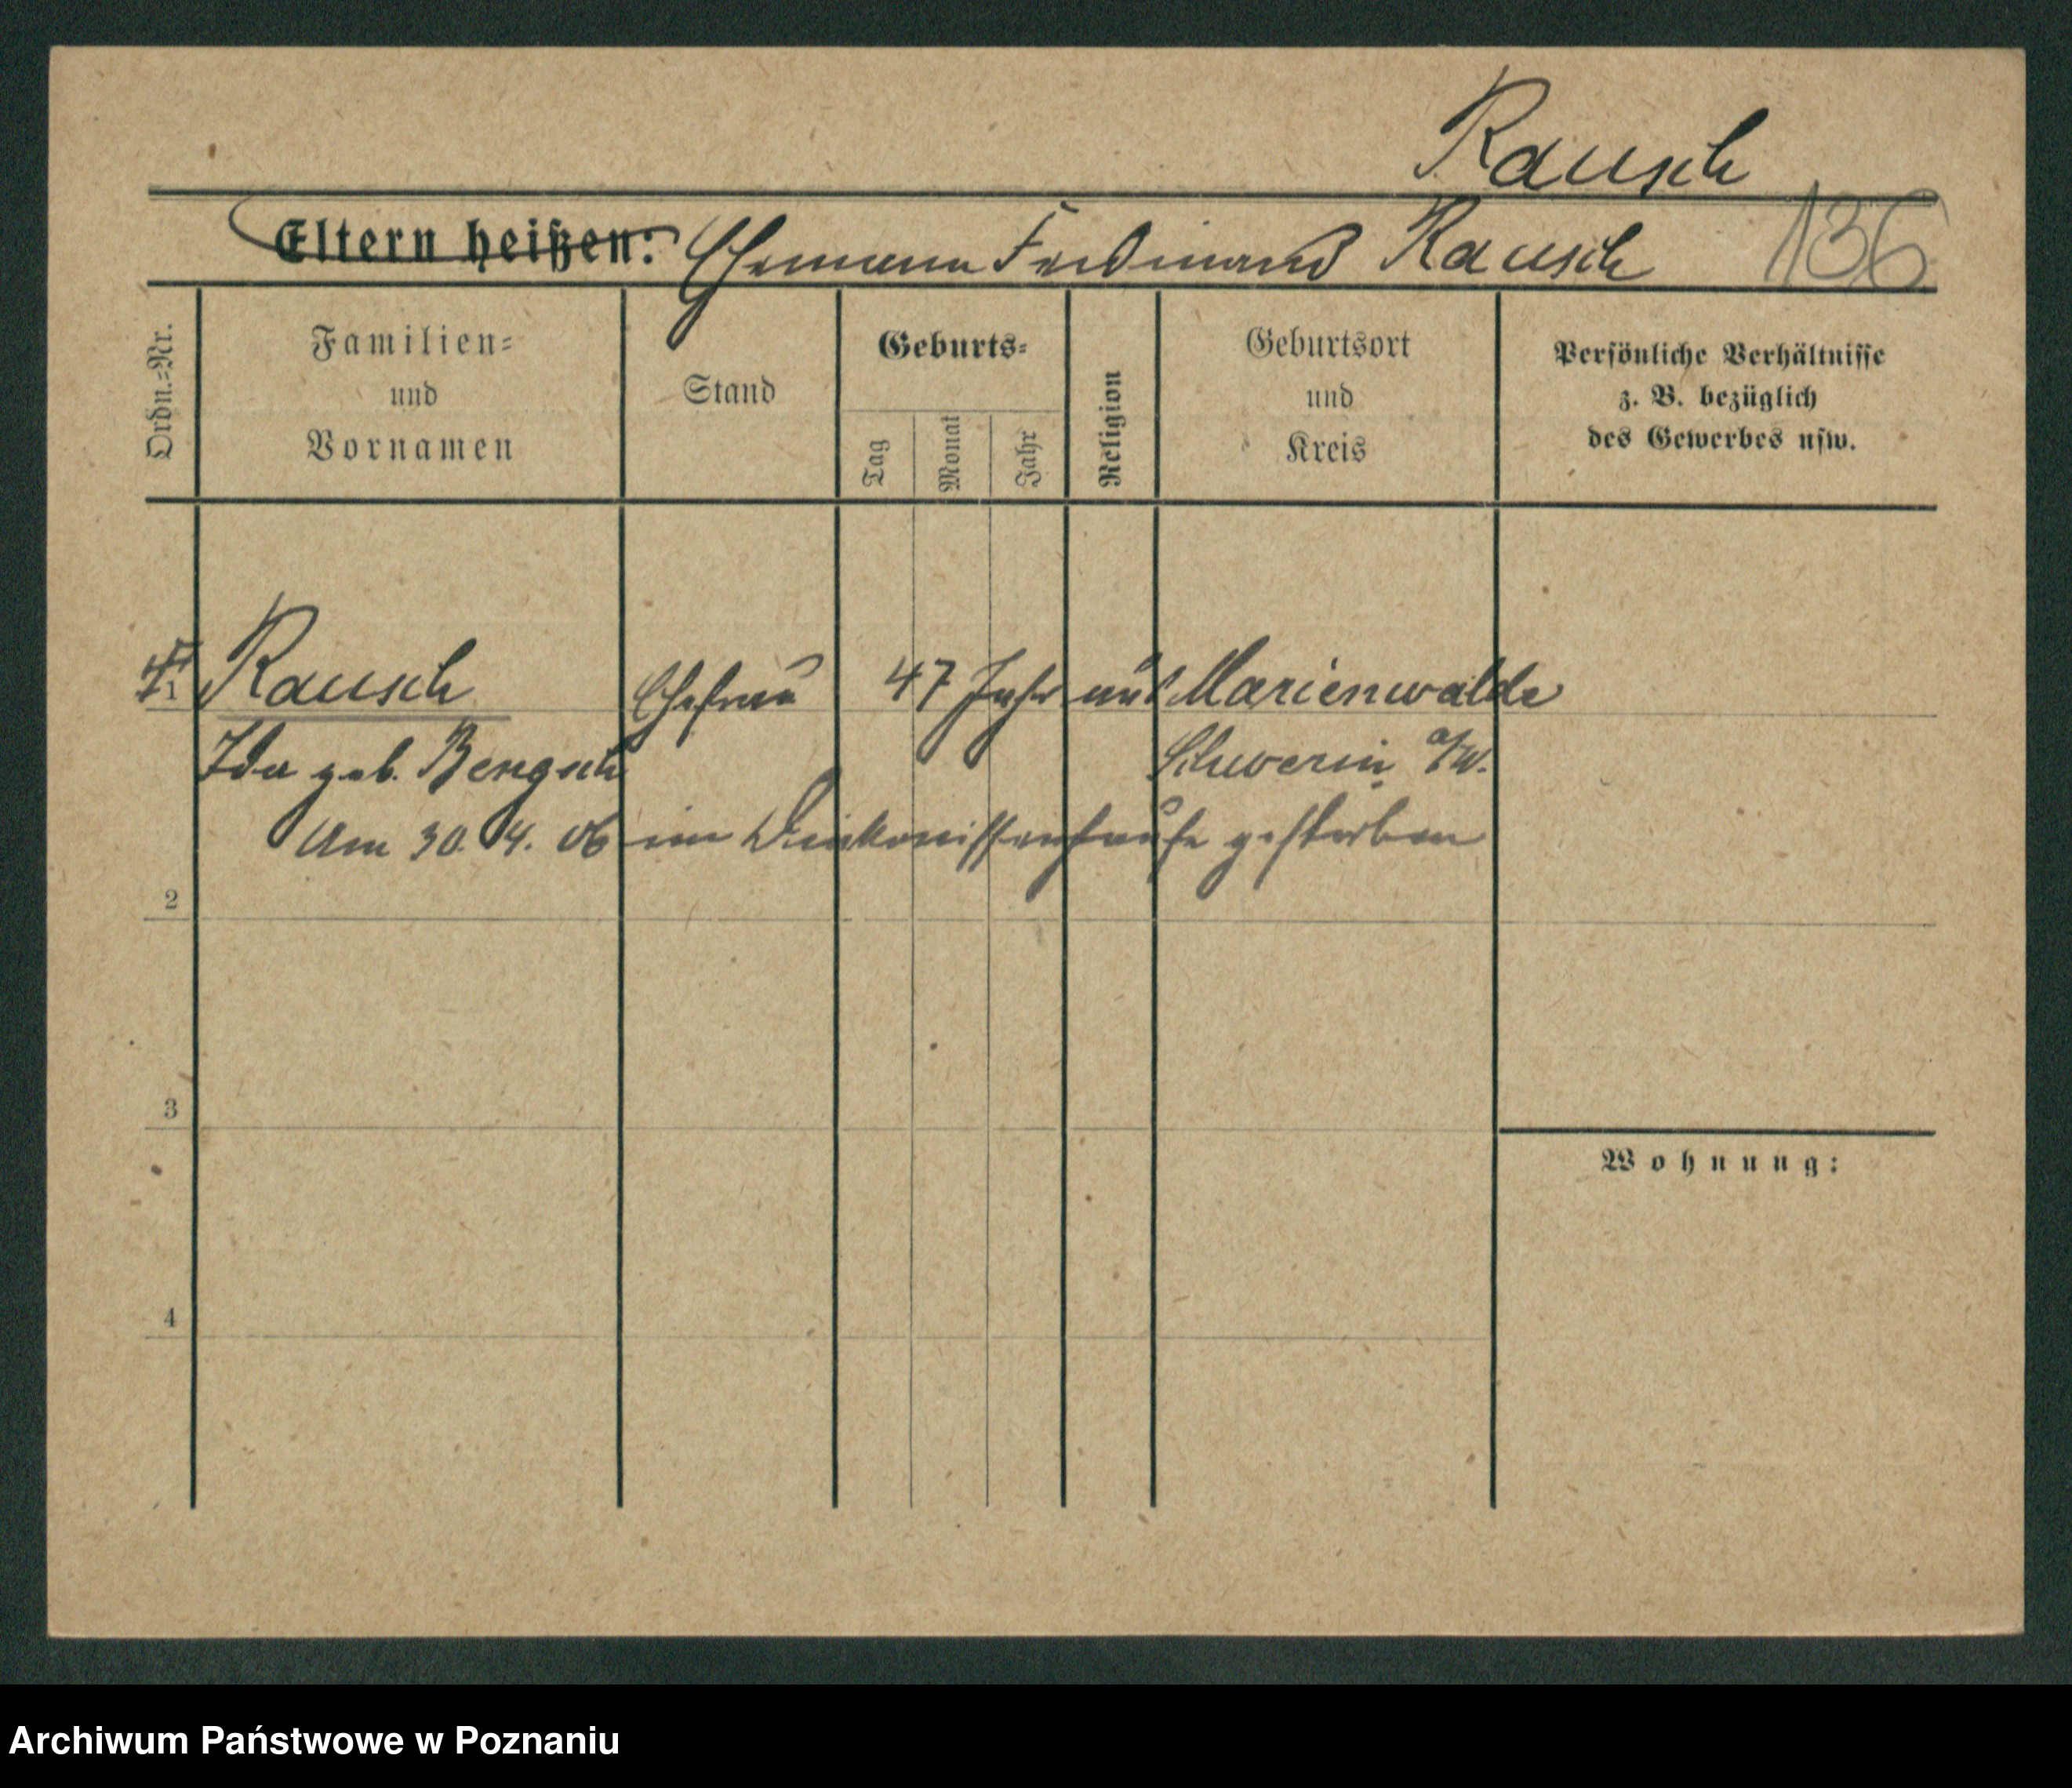 Rausch
Eltern heißen: Ehemann Ferdinand Rausch 136
Ordn.-Nr.
Familien-
und
Vornamen
Stand
Geburts-
Tag
Monat
Jahr
Religion
Geburtsort
und
Kreis
Persönliche Verhältnisse
z. B. bezüglich
des Gewerbes usw.
1 Rausch Ehefrau 47 Jahr aus Marienwalde
Ida geb. Bengsch Schwerin a/W.
Am 30. 4. 06 im Diakonissenhause gestorben
2
3
Wohnung:
4
Archiwum Państwowe w Poznaniu